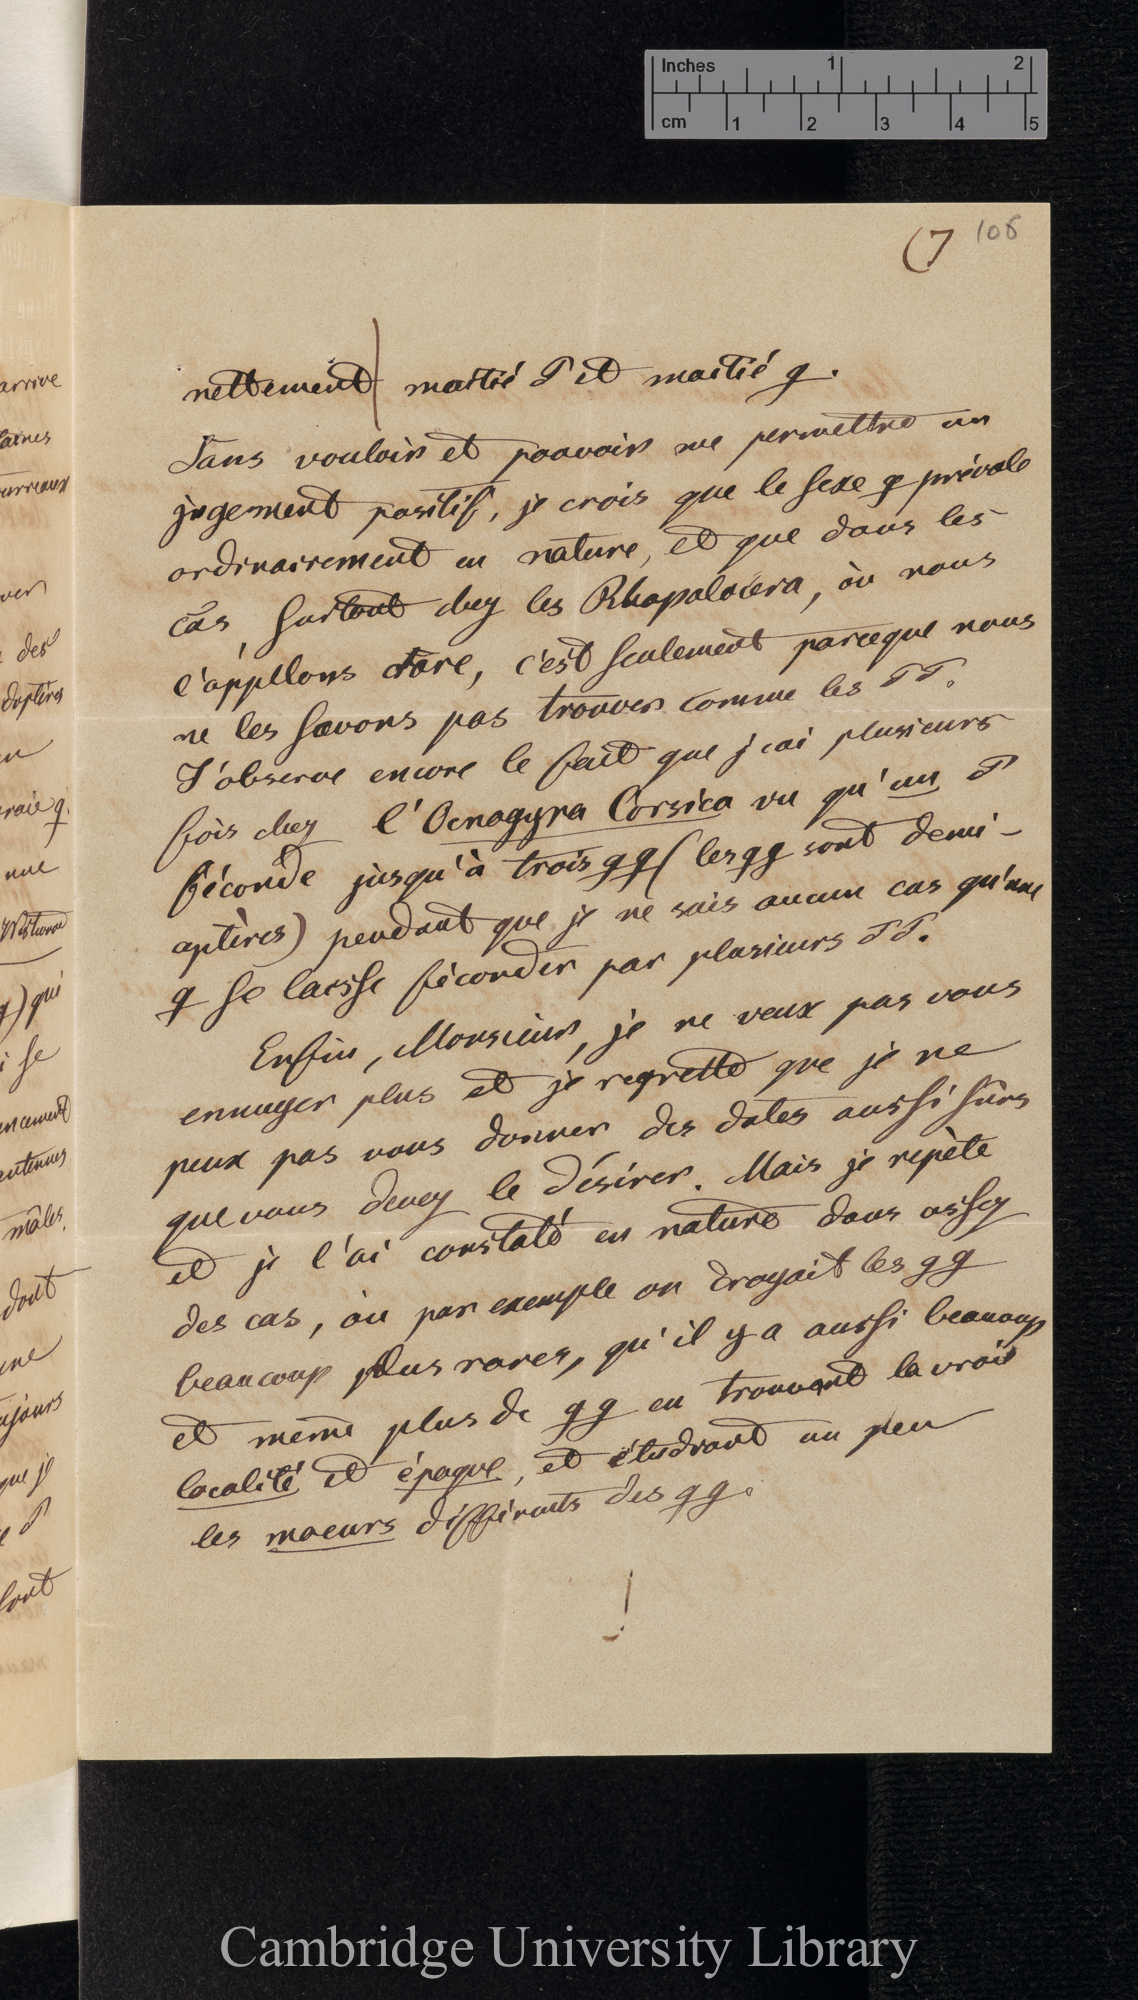 Inches 1 2
cm 1 2 3 4 5
(7 108
nettement moitié ♂ et moitié ♀.
Sans vouloir et pouvoir me permettre un
jugement positif, je crois que le sexe ♀ prévale
ordinairement en nature, et que dans les
cas, surtout chez les Rhopalocera, où nous
l'appellons rare, c'est seulement parceque nous
ne les savons pas trouver comme les ♂♂.
J'observe encore le fait que j'ai plusieurs
fois chez l'Ocnogyna Corsica vu qu'un ♂
féconde jusqu'à trois ♀♀ (les ♀♀ sont demi-
aptères) pendant que je ne sais aucun cas qu'une
♀ se laisse féconder par plusieurs ♂♂.
Enfin, Monsieur, je ne veux pas vous
ennuyer plus et je regrette que je ne
peux pas vous donner des dates aussi sûrs
que vous devez le désirer. Mais je repète
et je l'ai constaté en nature dans assez
des cas, où par exemple on croyait les ♀♀
beaucoup plus rares, qu'il y a aussi beaucoup
et même plus de ♀♀ en trouvant la vraie
localité et époque, et étudiant un peu
les moeurs différents des ♀♀.
!
arrive
ver
des
en
une
♀) qui
i se
antennes
mâles.
dont
une
ujours
que je
e ♂
sont
Cambridge University Library